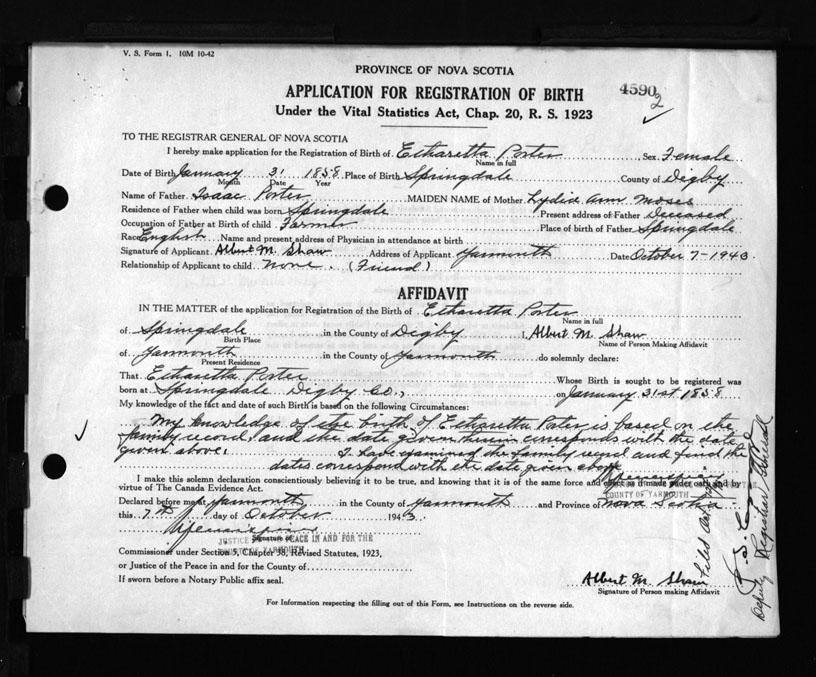 V. S. Form 1. 10M 10-42
PROVINCE OF NOVA SCOTIA
APPLICATION FOR REGISTRATION OF BIRTH
45902
Under the Vital Statistics Act, Chap. 20, R. S. 1923
TO THE REGISTRAR GENERAL OF NOVA SCOTIA
I hereby make application for the Registration of Birth of Etharetta Porter Sex Female
Name in full
Date of Birth January 31 1858 Place of Birth Springdale County of Digby
Month Date Year
Name of Father Isaac Porter MAIDEN NAME of Mother Lydia Ann Moses
Residence of Father when child was born Springdale Present address of Father Deceased
Occupation of Father at Birth of child Farmer Place of birth of Father Springdale
Race English Name and present address of Physician in attendance at birth
Signature of Applicant Albert M. Shaw Address of Applicant Yarmouth Date October 7-1943.
Relationship of Applicant to child None. (Friend)
AFFIDAVIT
IN THE MATTER of the application for Registration of the Birth of Etharetta Porter
Name in full
of Springdale in the County of Digby I, Albert M. Shaw
Birth Place Name of Person Making Affidavit
of Yarmouth in the County of Yarmouth do solemnly declare:
Present Residence
That Etharetta Porter Whose Birth is sought to be registered was
born at Springdale Digby Co., on January 31st 1858
My knowledge of the fact and date of such Birth is based on the following Circumstances:
My knowledge of the birth of Etharetta Porter is based on the
family record, and the date given therein corresponds with the date
given above. I have examined the family record and find the
dates correspond with the date given above
I make this solemn declaration conscientiously believing it to be true, and knowing that it is of the same force and effect as if made under oath and by
virtue of The Canada Evidence Act.
COUNTY OF YARMOUTH
Declared before me at Yarmouth in the County of Yarmouth and Province of Nova Scotia
this 7th day of October 1943.
Signature of
JUSTICE PEACE IN AND FOR THE
COUNTY OF YARMOUTH
Commissioner under Section 5, Chapter 38, Revised Statutes, 1923,
or Justice of the Peace in and for the County of
If sworn before a Notary Public affix seal.
Albert M. Shaw
Signature of Person making Affidavit
For Information respecting the filling out of this Form, see Instructions on the reverse side.
Deputy Registrar General